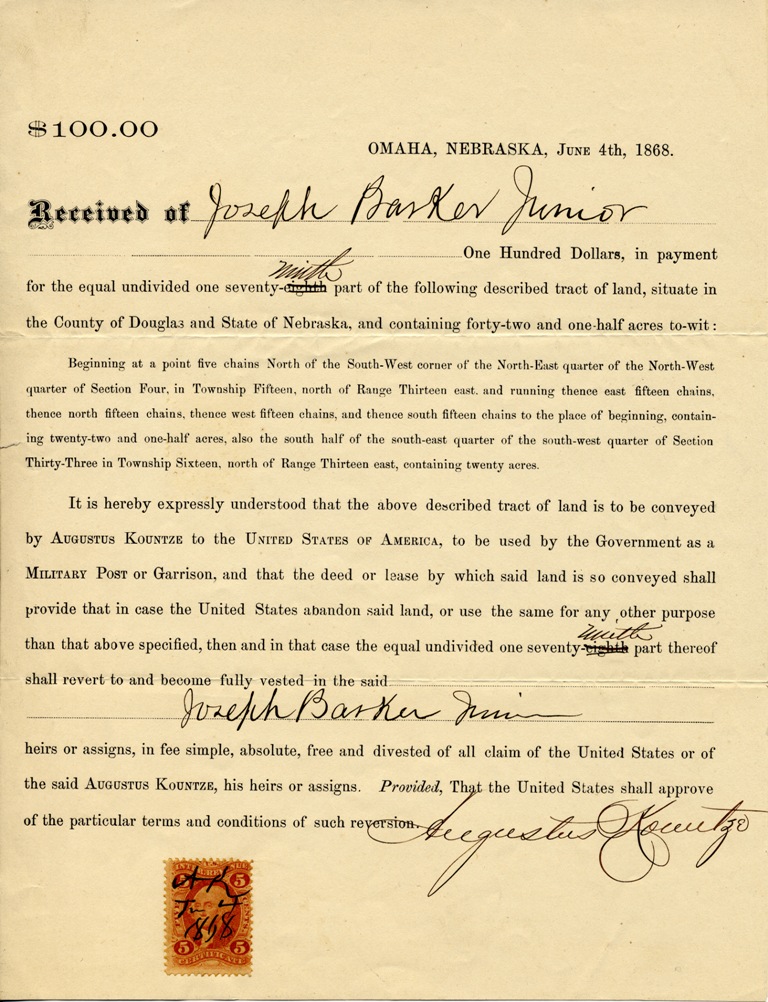 $100.00
OMAHA, NEBRASKA, JUNE 4th, 1868.
Received of Joseph Barker Junior
One Hundred Dollars, in payment
ninth
for the equal undivided one seventy-eighth part of the following described tract of land, situate in
the County of Douglas and State of Nebraska, and containing forty-two and one-half acres to-wit:
Beginning at a point five chains North of the South-West corner of the North-East quarter of the North-West
quarter of Section Four, in Township Fifteen, north of Range Thirteen east. and running thence east fifteen chains,
thence north fifteen chains, thence west fifteen chains, and thence south fifteen chains to the place of beginning, contain-
ing twenty-two and one-half acres, also the south half of the south-east quarter of the south-west quarter of Section
Thirty-Three in Township Sixteen, north of Range Thirteen east, containing twenty acres.
It is hereby expressly understood that the above described tract of land is to be conveyed
by AUGUSTUS KOUNTZE to the UNITED STATES OF AMERICA, to be used by the Government as a
MILITARY POST or GARRISON, and that the deed or lease by which said land is so conveyed shall
provide that in case the United States abandon said land, or use the same for any other purpose
ninth
than that above specified, then and in that case the equal undivided one seventy-eighth part thereof
shall revert to and become fully vested in the said
Joseph Barker Junior
heirs or assigns, in fee simple, absolute, free and divested of all claim of the United States or of
the said AUGUSTUS KOUNTZE, his heirs or assigns. Provided, That the United States shall approve
of the particular terms and conditions of such reversion. Augustus Kountze
5 5
A K
Jn 4
1868
5 5
CERTIFICATE